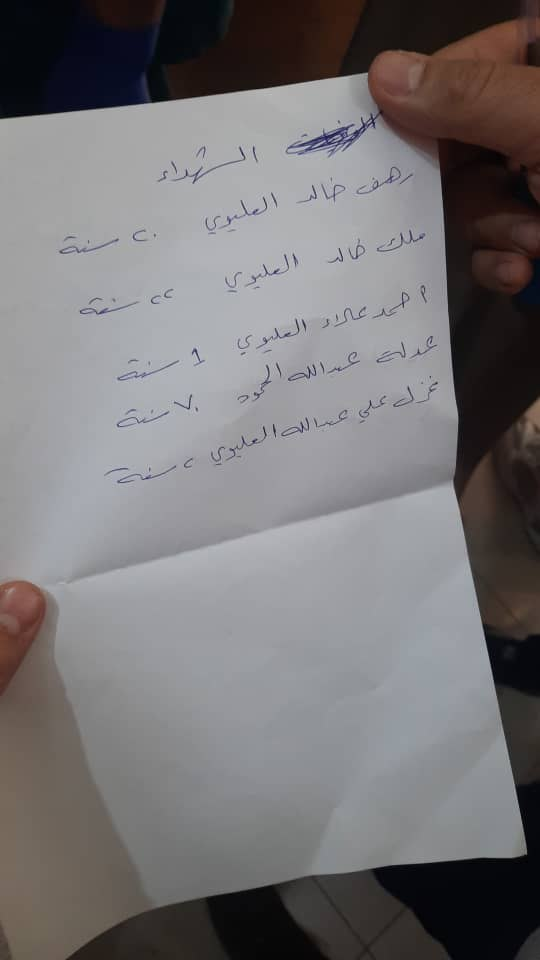 الشهداء
رهف خالد العليوي ٢٠ سنة
ملك خالد العليوي ٢٢ سنة
احمد علاء العليوي 1 سنة
عدلة عبدالله الحمود ٧٠ سنة
غزل علي عبدالله العليوي ٢ سنة